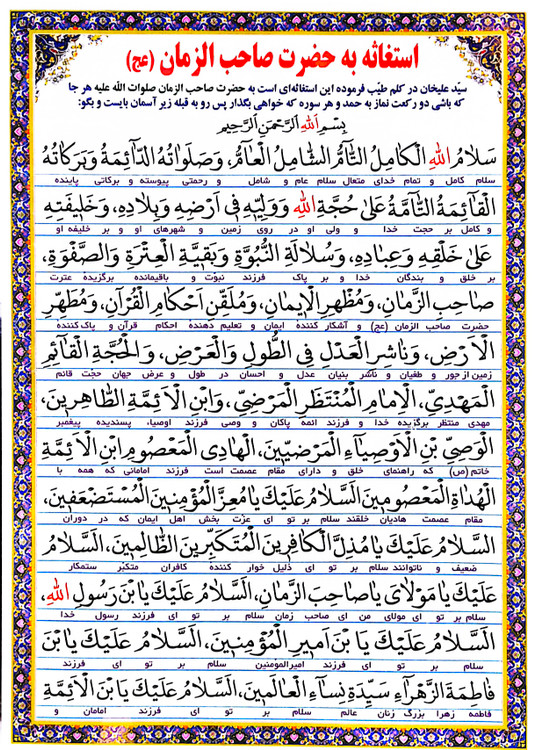 استغاثه به حضرت صاحب الزمان (عج)
سیّد علیخان در کلم طیّب فرموده این استغاثه‌ای است به حضرت صاحب الزمان صلوات الله علیه هر جا
که باشی دو رکعت نماز به حمد و هر سوره که خواهی بگذار پس رو به قبله زیر آسمان بایست و بگو:
بِسْمِ اللهِ الرَّحْمٰنِ الرَّحِیمِ
سَلامُ اللهِ الْکامِلُ التّامُّ الشّامِلُ الْعامُّ، وَصَلَواتُهُ الدّائِمَةُ وَبَرَکاتُهُ
سلام کامل و تمام خدای متعال سلام عام و شامل و رحمتی پیوسته و برکاتی پاینده
الْقائِمَةُ التّامَّةُ عَلیٰ حُجَّةِ اللهِ وَوَلِیِّهِ فی اَرْضِهِ وَبِلادِهِ، وَخَلیفَتِهِ
و کامل بر حجت خدا و ولی او در روی زمین و شهرهای او و بر خلیفه او
عَلیٰ خَلْقِهِ وَعِبادِهِ، وَسُلالَةِ النُّبُوَّةِ وَبَقِیَّةِ الْعِتْرَةِ وَالصَّفْوَةِ،
بر خلق و بندگان خدا و بر پاک فرزند نبوّت و باقیمانده برگزیده عترت
صاحِبِ الزَّمانِ، وَمُظْهِرِ الْاِیمانِ، وَمُلَقِّنِ اَحْکامِ الْقُرْآنِ، وَمُطَهِّرِ
حضرت صاحب الزمان (عج) و آشکار کنندۀ ایمان و تعلیم دهندۀ احکام قرآن و پاک کننده
الْاَرْضِ، وَناشِرِ الْعَدْلِ فِی الطُّولِ وَالْعَرْضِ، وَالْحُجَّةِ الْقائِمِ
زمین از جور و طغیان و ناشر بنیان عدل و احسان در طول و عرض جهان حجّت قائم
الْمَهْدِیِّ، الْاِمامِ الْمُنْتَظَرِ الْمَرْضِیِّ، وَابْنِ الْاَئِمَّةِ الطّاهِرینَ،
مهدی منتظر برگزیده خدا و فرزند ائمه پاکان و وصی فرزند اوصیاء پسندیده پیغمبر
الْوَصِیِّ بْنِ الْاَوْصِیآءِ الْمَرْضِیّینَ، الْهادِی الْمَعْصُومِ ابْنِ الْاَئِمَّةِ
خاتم (ص) که راهنمای خلق و دارای مقام عصمت است فرزند امامانی که همه با
الْهُداةِ الْمَعْصُومینَ السَّلامُ عَلَیْکَ یا مُعِزَّ الْمُؤْمِنینَ الْمُسْتَضْعَفینَ،
مقام عصمت هادیان خلقند سلام بر تو ای عزّت بخش اهل ایمان که در دوران
السَّلامُ عَلَیْکَ یا مُذِلَّ الْکافِرینَ الْمُتَکَبِّرینَ الظّالِمینَ، السَّلامُ
ضعیف و ناتوانند سلام بر تو ای ذلیل خوار کننده کافران متکبّر ستمکار
عَلَیْکَ یا مَوْلایَ یا صاحِبَ الزَّمانِ، السَّلامُ عَلَیْکَ یَا بْنَ رَسُولِ اللهِ،
سلام بر تو ای مولای من ای صاحب زمان سلام بر تو ای فرزند رسول خدا
السَّلامُ عَلَیْکَ یَا بْنَ اَمیرِ الْمُؤْمِنینَ، السَّلامُ عَلَیْکَ یَا بْنَ
سلام بر تو ای فرزند امیرالمؤمنین سلام بر تو ای فرزند
فاطِمَةَ الزَّهْرآءِ سَیِّدَةِ نِسآءِ الْعالَمینَ، السَّلامُ عَلَیْکَ یَا بْنَ الْاَئِمَّةِ
فاطمه زهرا بزرگ زنان عالم سلام بر تو ای فرزند امامان و